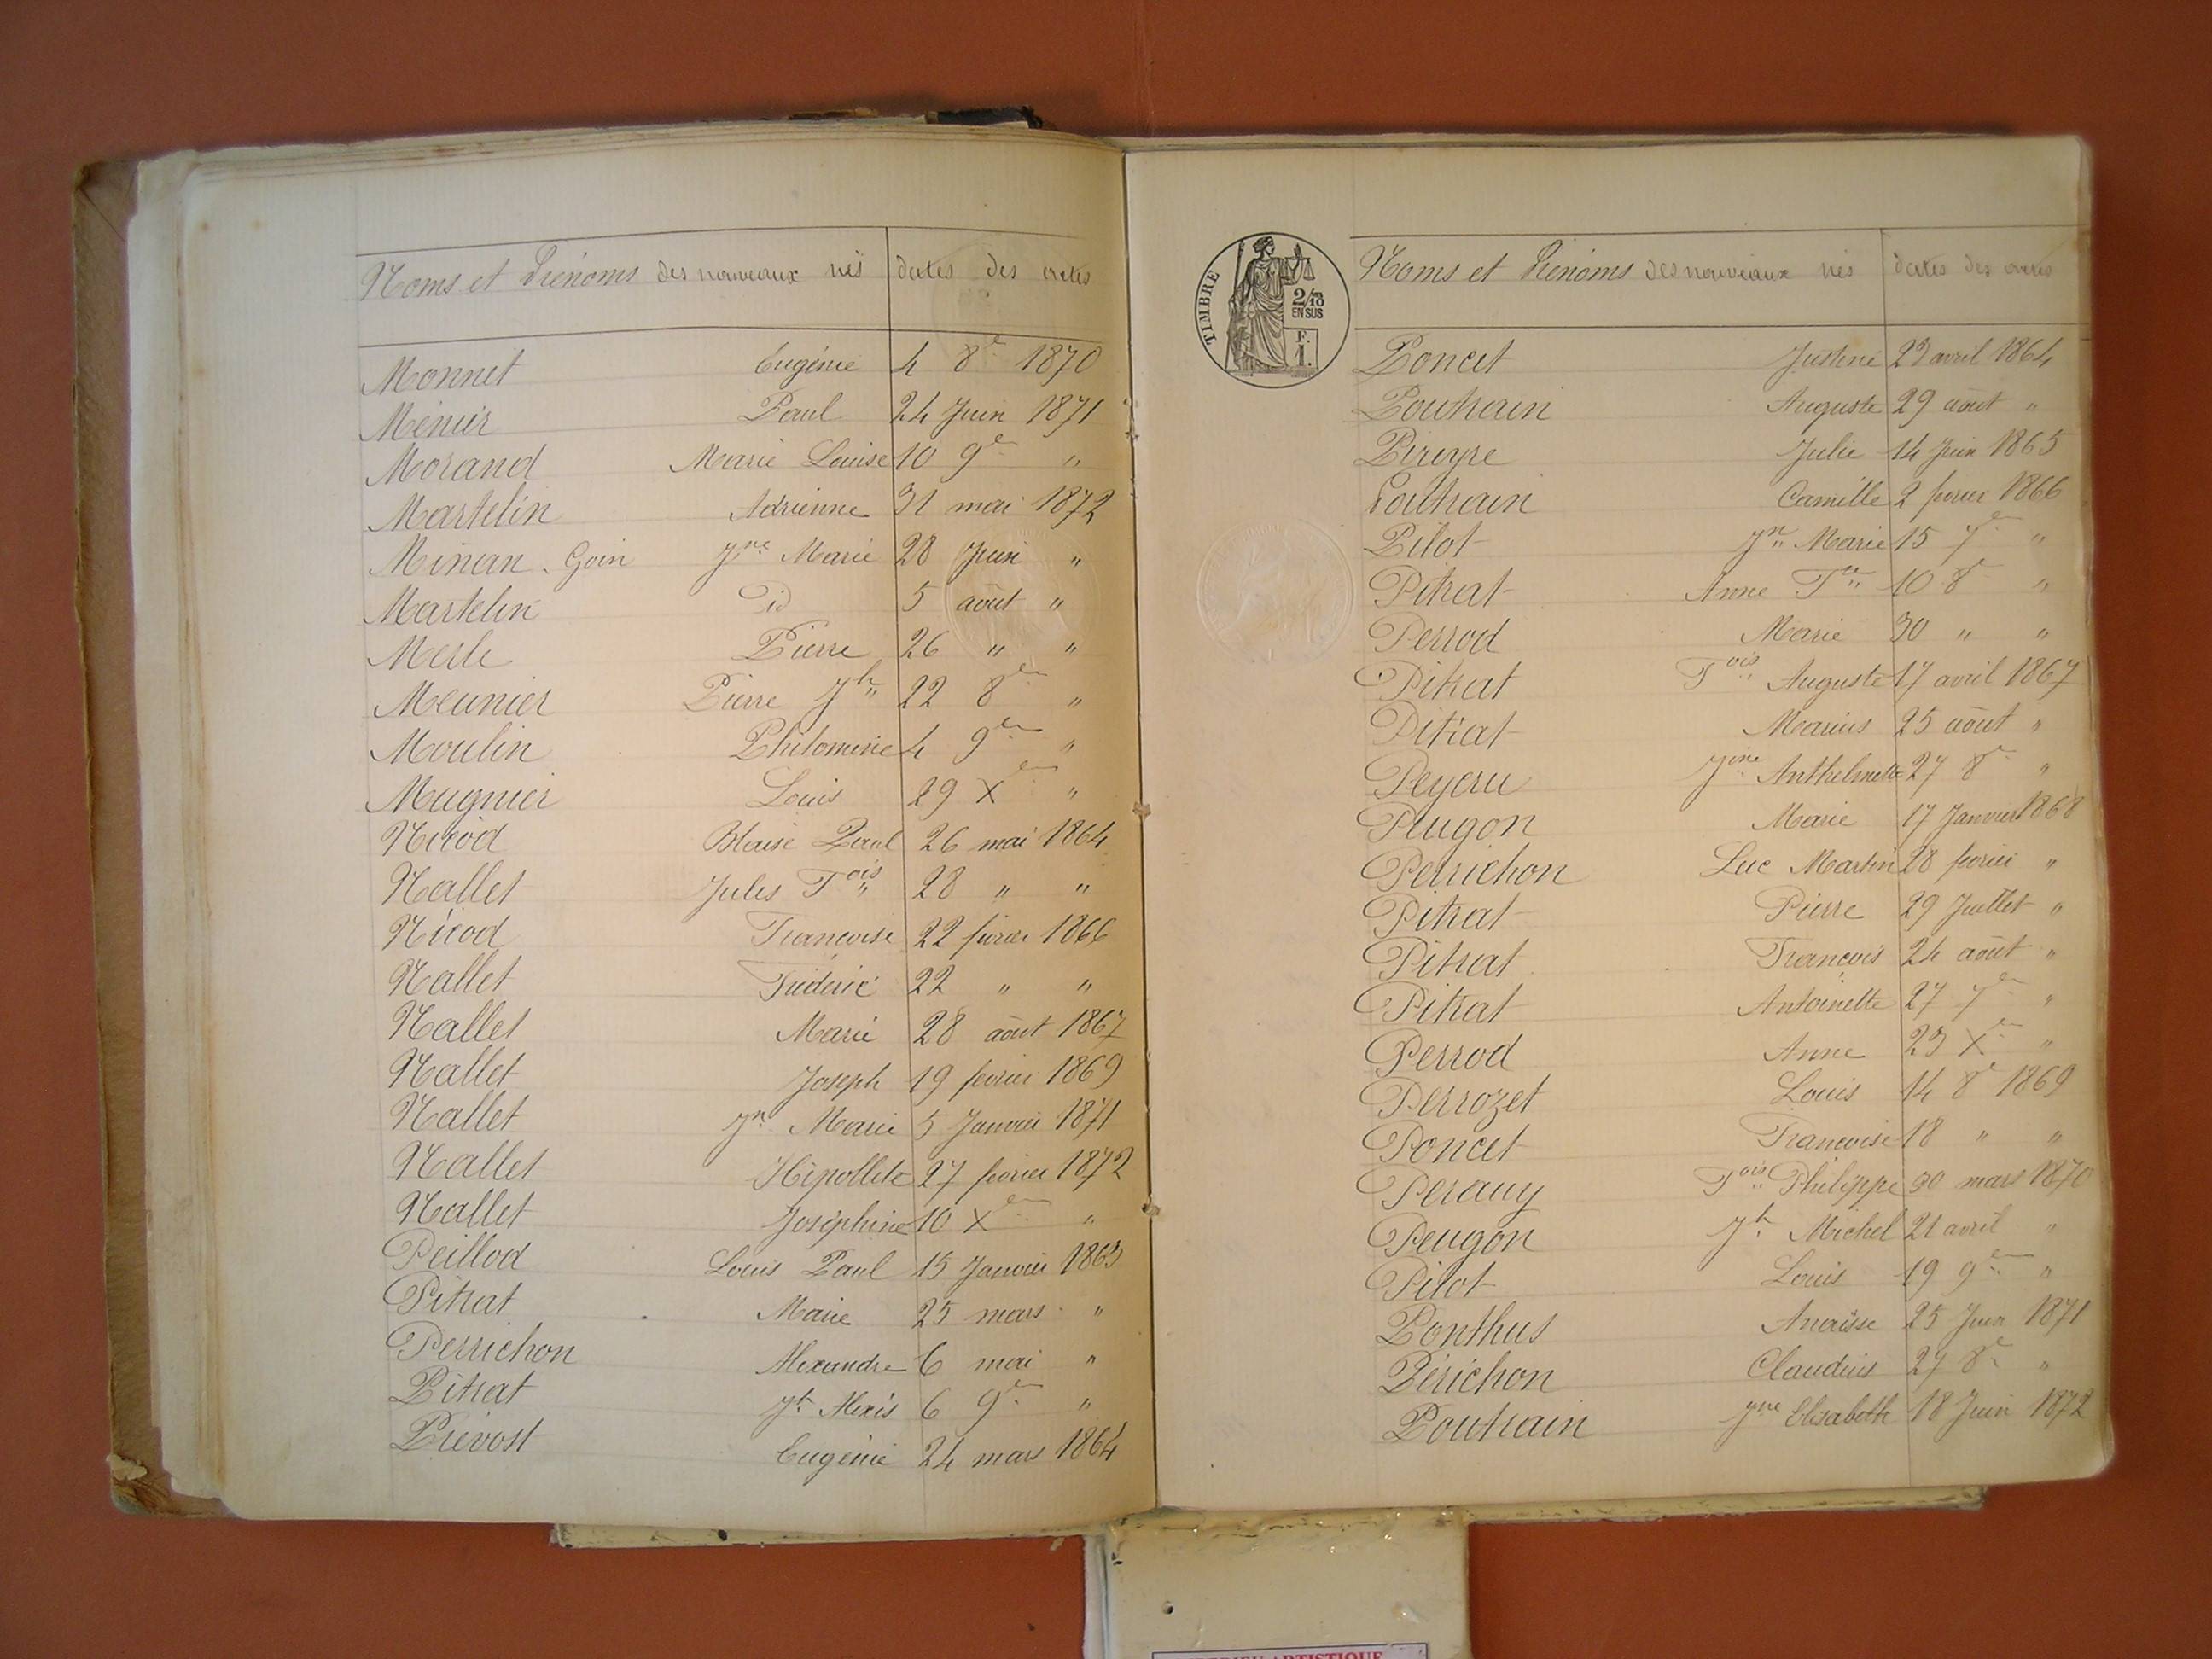 Noms et Prénoms des nouveaux nés dates des actes
Monnet Eugénie 4 8e 1870
Menier Paul 24 Juin 1871
Morand Marie Louise 10 9e "
Martelin Adrienne 31 mai 1872
Minan-Goin Jne Marie 28 Juin "
Martelin Id 5 août "
Merle Pierre 26 " "
Meunier Pierre Jh 22 8e "
Moulin Philomène 4 9e "
Mugnier Louis 29 Xe "
Nicod Blaise Paul 26 mai 1864
Nallet Jules Fois 28 " "
Nicod Francoise 22 février 1866
Nallet Frédéric 22 " "
Nallet Marie 28 août 1867
Nallet Joseph 19 février 1869
Nallet Jn Marie 5 Janvier 1871
Nallet Hipollite 27 février 1872
Nallet Joséphine 10 Xe "
Peillod Louis Paul 15 Janvier 1863
Pitrat Marie 25 mars "
Perrichon Alexandre 6 mai "
Pitrat Jh Alexis 6 9e "
Prévost Eugénie 24 mars 1864
TIMBRE
2/10
EN SUS
F.
1.
Noms et Prénoms des nouveaux nés dates des actes
Poncet Justine 23 avril 1864
Poutrain Auguste 29 août "
Pireyre Julie 14 Juin 1865
Poutrain Camille 2 février 1866
Pilot Jn Marie 15 7e "
Pitrat Anne Fse 10 8e "
Perrod Marie 30 " "
Pitrat Fois Auguste 17 avril 1867
Pitrat Marius 25 août "
Peyeru Jne Anthelmette 27 8e "
Peugon Marie 17 Janvier 1868
Perrichon Luc Martin 28 février "
Pitrat Pierre 29 Juillet "
Pitrat Francois 24 août "
Pitrat Antoinette 27 7e "
Perrod Anne 23 Xe "
Perrozet Louis 14 8e 1869
Poncet Francoise 18 " "
Perauy Fois Philippe 30 mars 1870
Peugon Jh Michel 21 avril "
Pilot Louis 19 9e "
Ponthus Anaïsse 25 Juin 1871
Périchon Claudius 27 8e "
Poutrain Jne Elisabeth 18 Juin 1872